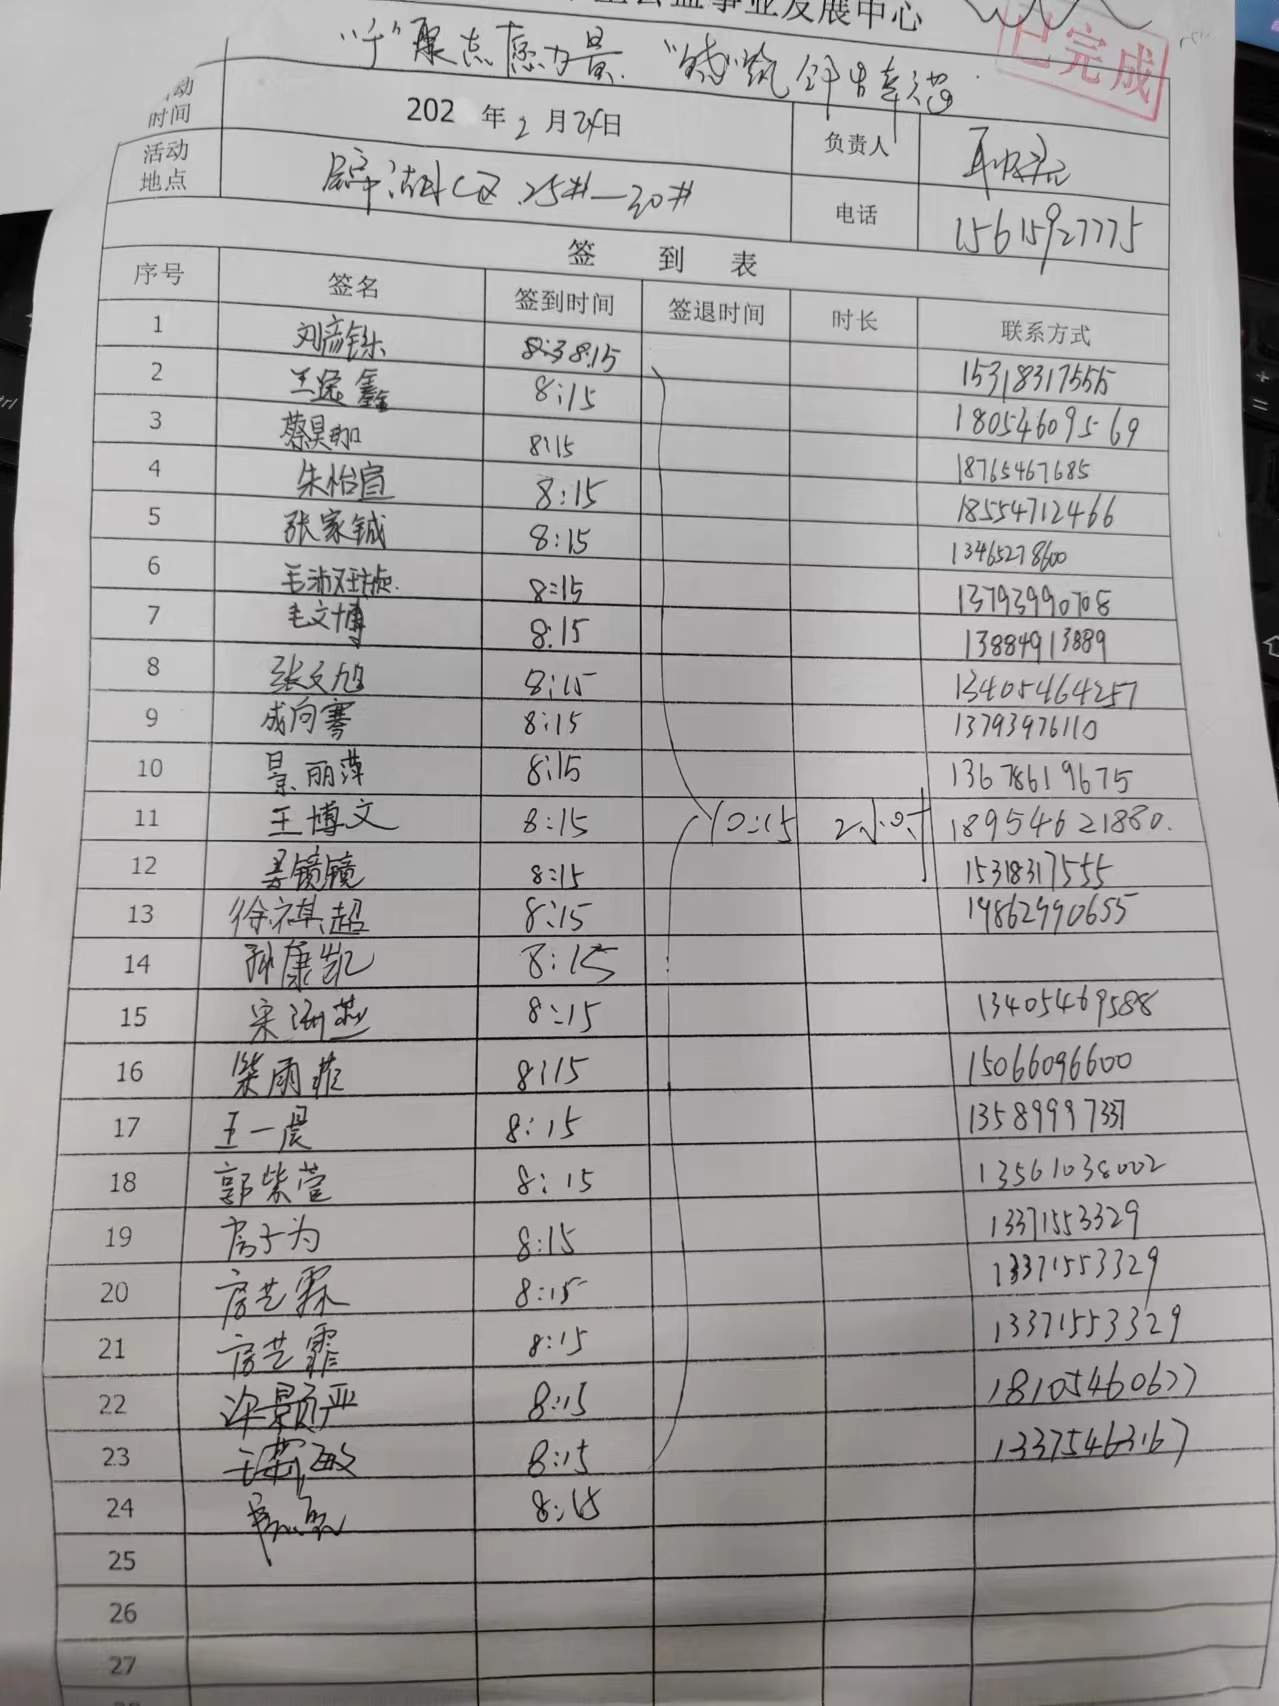 公益事业发展中心
已完成
活动时间 202 年 2 月 24 日 负责人
活动地点 辟湖 C区 25#—30# 电话 15615927775
签 到 表
序号 签名 签到时间 签退时间 时长 联系方式
1 刘彦铄 8:3 8:15 15318317555
2 王逸鑫 8:15 18054609569
3 蔡昊珈 8:15 18765467685
4 朱怡宣 8:15 18554712466
5 张家铖 8:15 13465278600
6 8:15 13793990708
7 毛文博 8:15 13884913889
8 张文旭 8:15 13405464257
9 成向骞 8:15 13793976110
10 景丽萍 8:15 13678619675
11 王博文 8:15 10:15 2小时 18954621880.
12 姜镜镜 8:15 15318317555
13 徐祺超 8:15 19862990655
14 孙康凯 8:15
15 宋涵 8:15 13405469588
16 梁雨菲 8:15 15066096600
17 王一晨 8:15 13589997337
18 郭紫萱 8:15 13561038002
19 房子为 8:15 13371553329
20 房艺霖 8:15 13371553329
21 房艺霏 8:15 13371553329
22 许景颜严 8:15 18105460677
23 王莉敏 8:15 13375463167
24 8:15
25
26
27